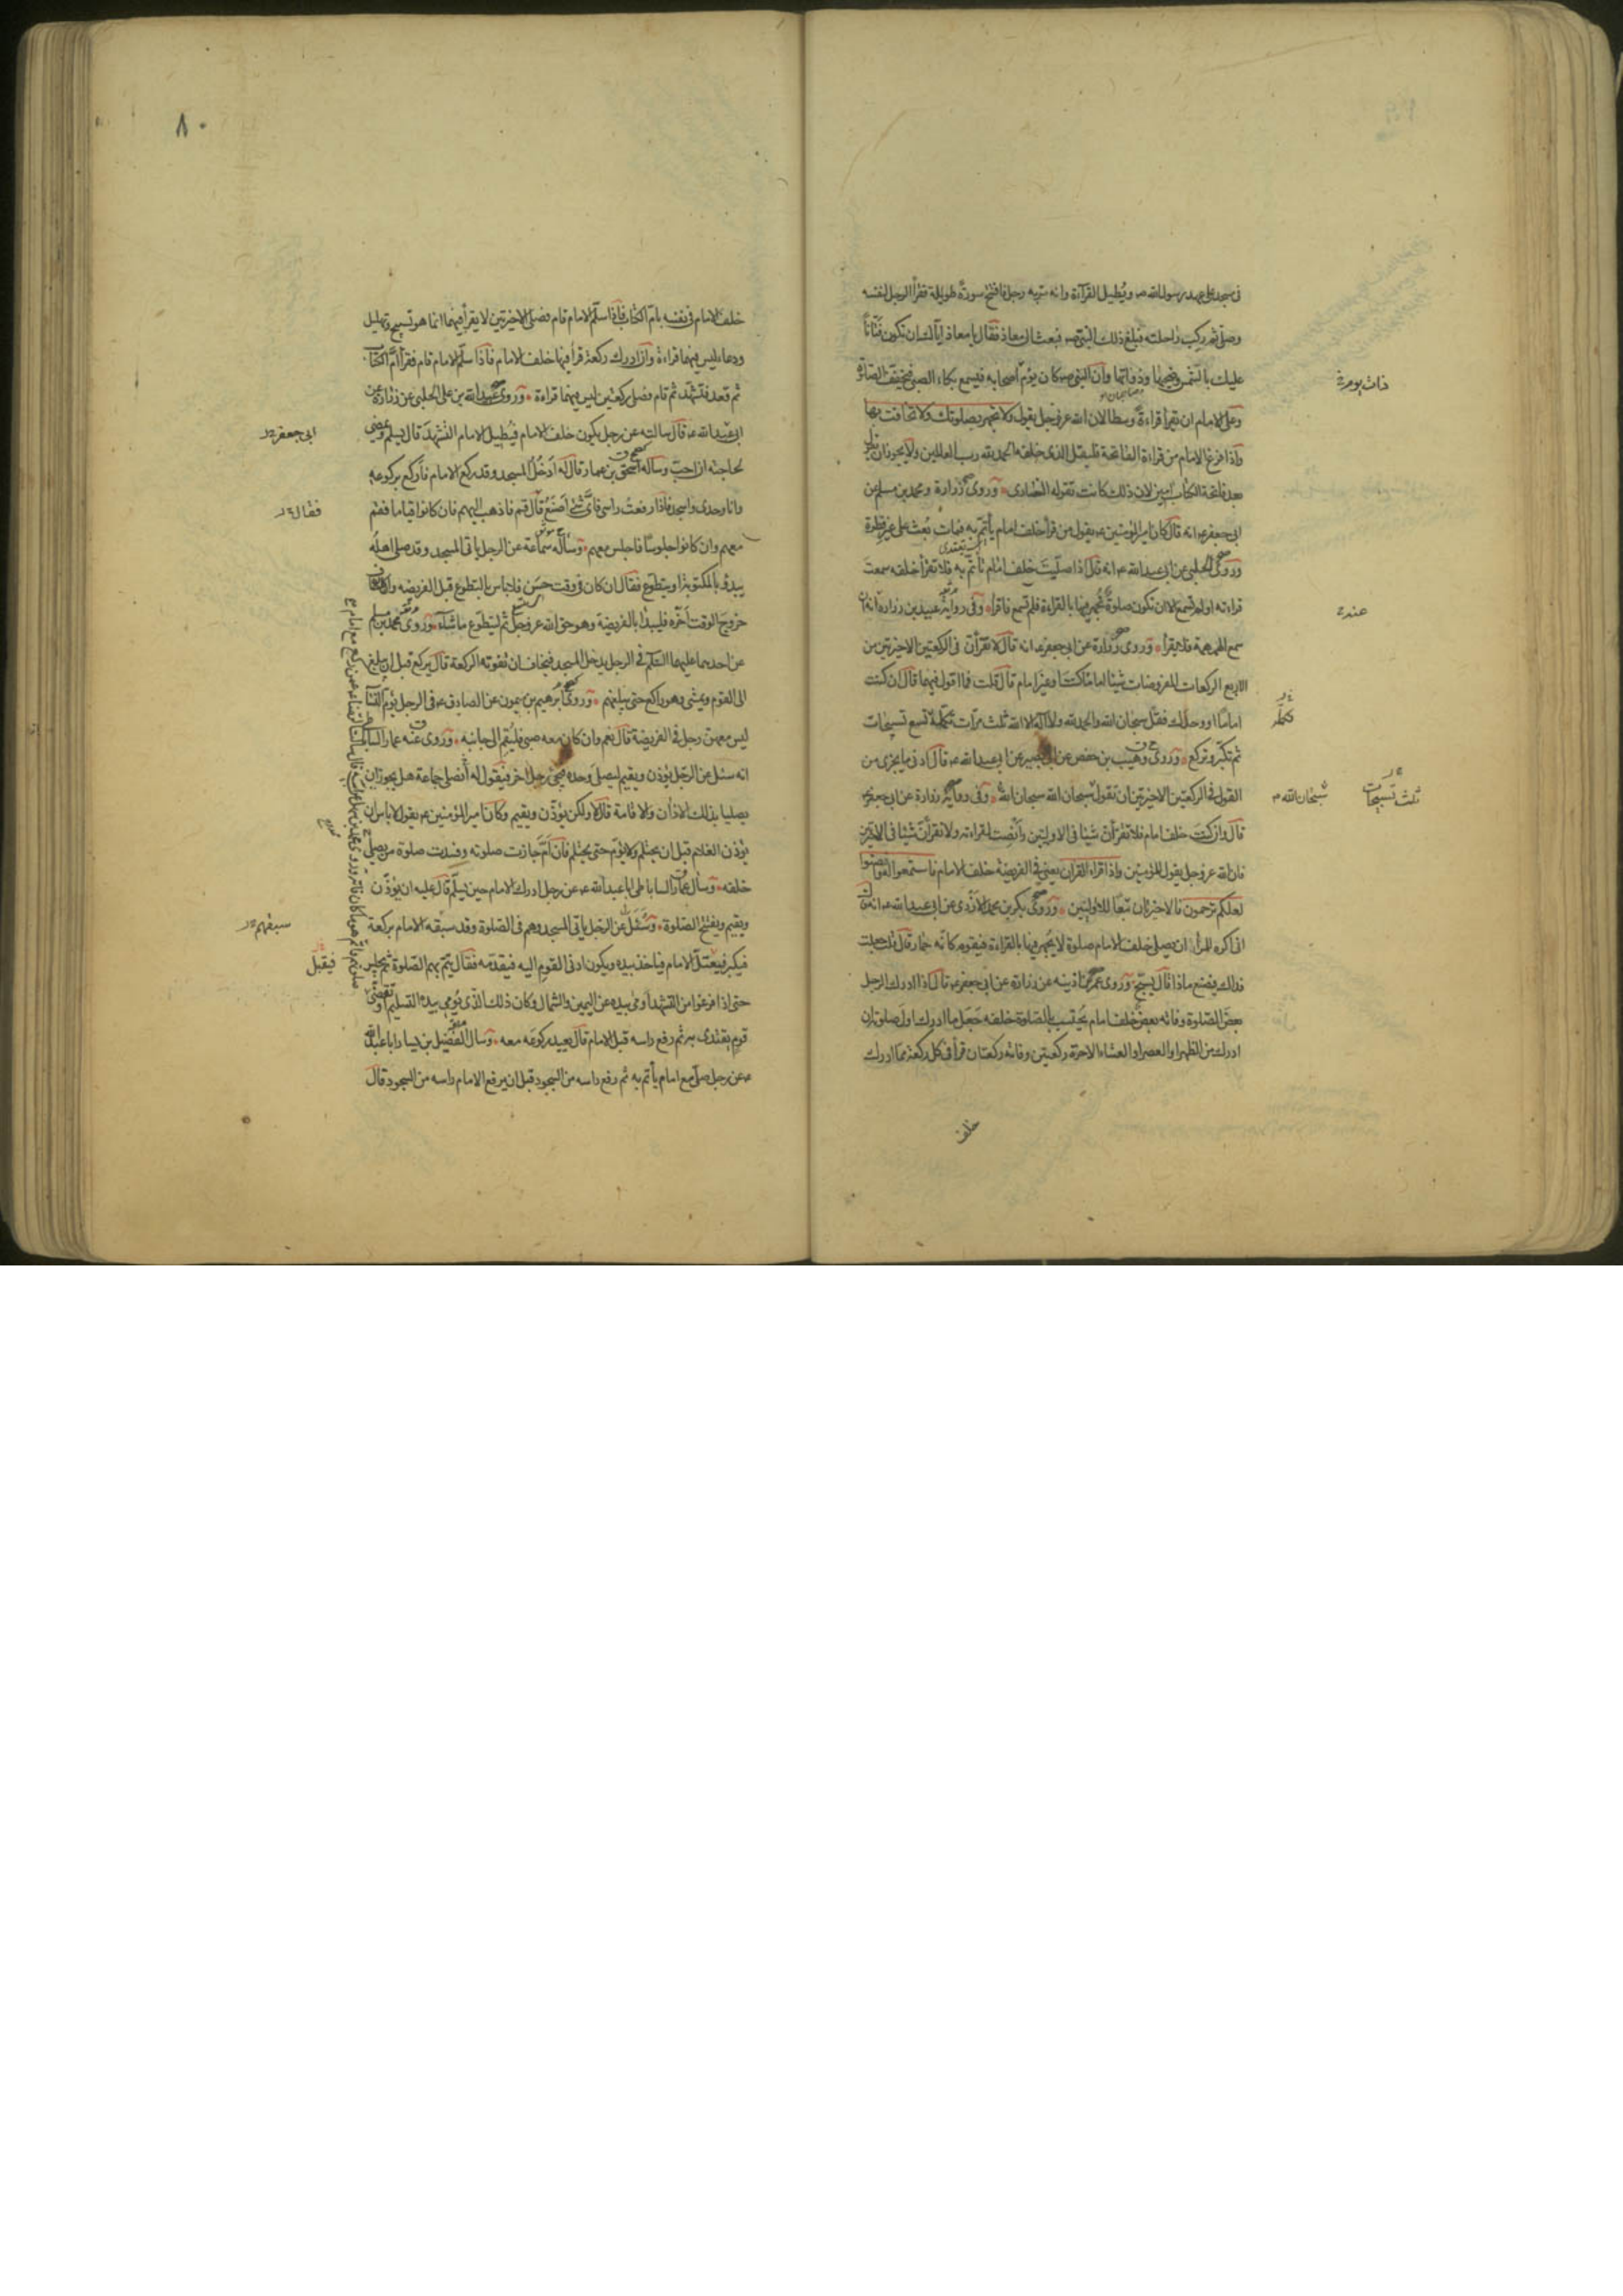 فى مسجد على عهد رسول الله ص و يُطيل القراءة وانه مرّ به رجل فافتتح سورة طويلة فقرأ الرجل لنفسه
وصلّى ثم ركب راحلته فبلغ ذلك النبى ص فبعث الى معاذ فقال يا معاذ ايّاك ان تكون فتّاناً
عليك بالشمس وضحيها وذواتها وان النبى ص كان يؤم اصحابه فيسمع بكاء الصبى فيخفف الصلوة
وعلى الامام ان يقرأ قراءة وسطا لان الله عز وجل يقول ولا تجهر بصلوتك ولا تخافت بها
واذا فرغ الامام من قراءة الفاتحة فليقل الذى خلفه الحمد لله رب العالمين ولا يجوز ان يقال
بعد فاتحة الكتاب آمين لان ذلك كانت تقوله النصارى وروى زرارة ومحمد بن مسلم عن
ابى جعفر ع انه قال كان امير المؤمنين ع يقول من قرأ خلف امام يأتم به فمات بُعث على غير فطرة
وروى الحلبى عن ابى عبد الله ع انه قال اذا صلّيت خلف امام تأتم به فلا تقرأ خلفه سمعت
قراءته او لم تسمع الا ان تكون صلوة يُجهر فيها بالقراءة فلم تسمع فاقرأ وفى رواية عبيد بن زرارة انه ان
سمع الهمهمة فلا يقرأ وروى زرارة عن ابى جعفر ع انه قال لا تقرأن فى الركعتين الاخيرتين من
الاربع الركعات المفروضات شيئا اماما كنت او غير امام قال قلت فما اقول فيهما قال ان كنت
اماما او وحدك فقل سبحان الله والحمد لله ولا اله الا الله ثلث مرات تكملة تسع تسبيحات
ثم تكبر وتركع وروى وهيب بن حفص عن ابى بصير عن ابى عبد الله ع قال ادنى ما يجزى من
القول فى الركعتين الاخيرتين ان تقول سبحان الله سبحان الله وفى رواية زرارة عن ابى جعفر ع
قال وان كنت خلف امام فلا تقرأن شيئا فى الاوليين وأنصت لقراءته ولا تقرأن شيئا فى الاخيرتين
فان الله عز وجل يقول للمؤمنين واذا قرئ القرآن يعنى فى الفريضة خلف الامام فاستمعوا له وانصتوا
لعلكم ترحمون فالاخيرتان تبعا للاوليين وروى بكر بن محمد الازدى عن ابى عبد الله ع انه قال
انى اكره للمرء ان يصلى خلف الامام صلوة لا يجهر فيها بالقراءة فيقوم كانه حمار قال قلت جعلت
فداك فيصنع ماذا قال يسبّح وروى عمر بن اذينه عن زرارة عن ابى جعفر ع قال اذا ادرك الرجل
بعض الصلوة وفاته بعض خلف امام يحتسب بالصلوة خلفه جعل ما ادرك اول صلوته ان
ادرك من الظهر او العصر او العشاء الاخرة ركعتين وفاته ركعتان قرأ فى كل ركعة مما ادرك
خلف
ذات يوم
عند
سبحان الله
ثلث تسبيحات
٨٠
خلف الامام فى نفسه بام الكتاب فاذا سلّم الامام قام فصلى الاخيرتين لا يقرأ فيهما انما هو تسبيح وتهليل
ودعاء ليس فيهما قراءة وان ادرك ركعة قرأ فيها خلف الامام فاذا سلّم الامام قام فقرأ ام الكتاب
ثم قعد فتشهّد ثم قام فصلى ركعتين ليس فيهما قراءة وروى عبيد الله بن على الحلبى عن زرارة عن
ابى عبد الله ع قال سالته عن رجل يكون خلف الامام فيُطيل الامام التشهد قال يسلم ويمضى
لحاجته ان احبّ وساله اسحق بن عمار قال له أدخُلُ المسجد وقد ركع الامام فأركع بركوعه
وانا وحدى واسجد فاذا رفعت راسى فاىّ شئ أصنع قال قم فاذهب اليهم فان كانوا قياما فقم
معهم وان كانوا جلوسا فاجلس معهم وسأله سماعة عن الرجل ياتى المسجد وقد صلى اهله
يبدؤ بالمكتوبة او يتطوع فقال ان كان فى وقت حسن فلا باس بالتطوع قبل الفريضه وان كان
خروج الوقت أخّره فليبدأ بالفريضة وهو حق الله عز وجل ثم ليتطوع ما شاء وروى محمد بن مسلم
عن احدهما عليهما السلم فى الرجل يدخل المسجد فيخاف ان تفوته الركعة قال يركع قبل ان يبلغ
الى القوم ويمشى وهو راكع حتى يبلغهم وروى ابرهيم بن ميمون عن الصادق ع فى الرجل يؤم النساء
ليس معهن رجل فى الفريضة قال نعم وان كان معه صبى فليقم الى جانبه وروى عنه عمار الساباطى
انه سئل عن الرجل يؤذن ويقيم ليصلى وحده فيجئ رجل اخر فيقول له أنصلى جماعة هل يجوز ان
يصليا بذلك الاذان والاقامة قال لا ولكن يؤذن ويقيم وكان امير المؤمنين ع يقول لا باس ان
يؤذن الغلام قبل ان يحتلم ولا يؤم حتى يحتلم فان أمّ جازت صلوته وفسدت صلوة من يصلى
خلفه وسال عمار الساباطى ابا عبد الله ع عن رجل ادرك الامام حين يسلم قال عليه ان يؤذن
ويقيم ويفتتح الصلوة وسُئل عن الرجل ياتى المسجد وهم فى الصلوة وقد سبقه الامام بركعة
فيكبر فيعتلّ الامام فياخذ بيده ويكون ادنى القوم اليه فيقدمه فقال يتم بهم الصلوة ثم يجلس
حتى اذا فرغوا من التشهد أومى بيده عن اليمين والشمال وكان ذلك الذى يُومى بيده التسليم وتقضى
قوم يقتدى بهم ثم رفع راسه قبل الامام قال يعيد بركوعه معه وسال الفضيل بن يسار ابا عبد الله
ع عن رجل صلّى مع امام يأتم به ثم رفع راسه من السجود قبل ان يرفع الامام راسه من السجود قال
ابى جعفر
فقال
سبقهم
فيقبل